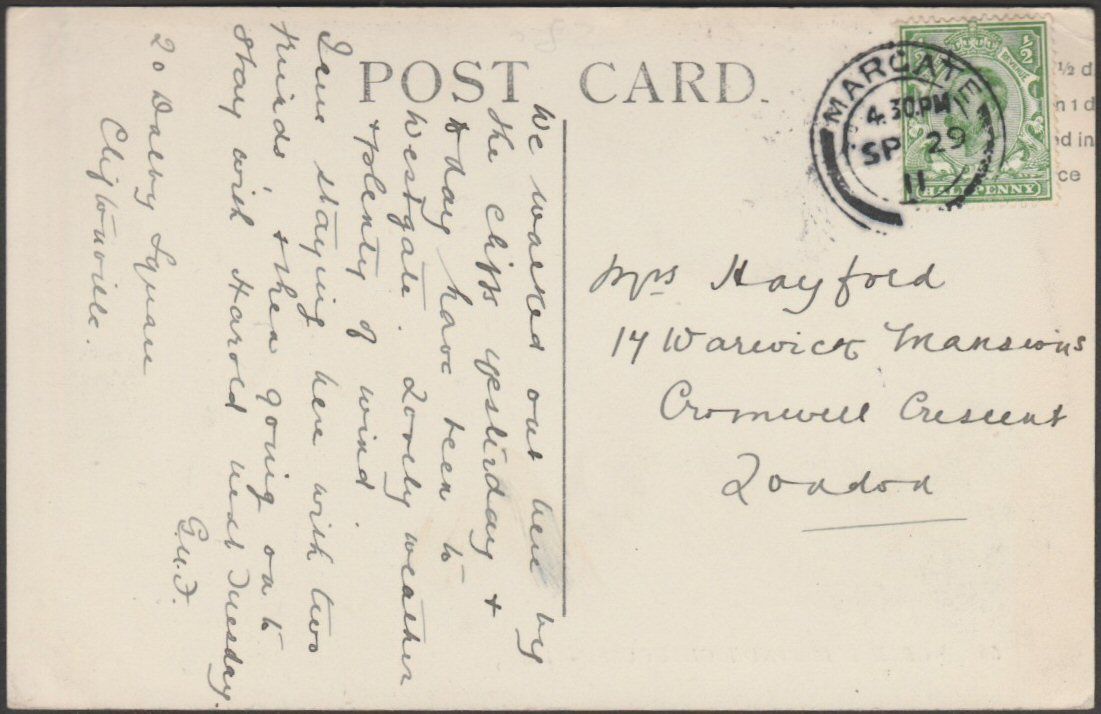 POST CARD.
MARGATE
4.30 PM
SP 29
11
½ ½
REVENUE
HALFPENNY
½ d
n 1 d
d in
ce
Mrs Hayford
17 Warwick Mansions
Cromwell Crescent
London
We walked out here by
the cliffs yesterday &
to day have been to
Westgate. Lovely weather
& plenty of wind
I am staying here with two
friends, & then going on to
stay with Harold next Tuesday.
20 Dalby Square
Cliftonville.